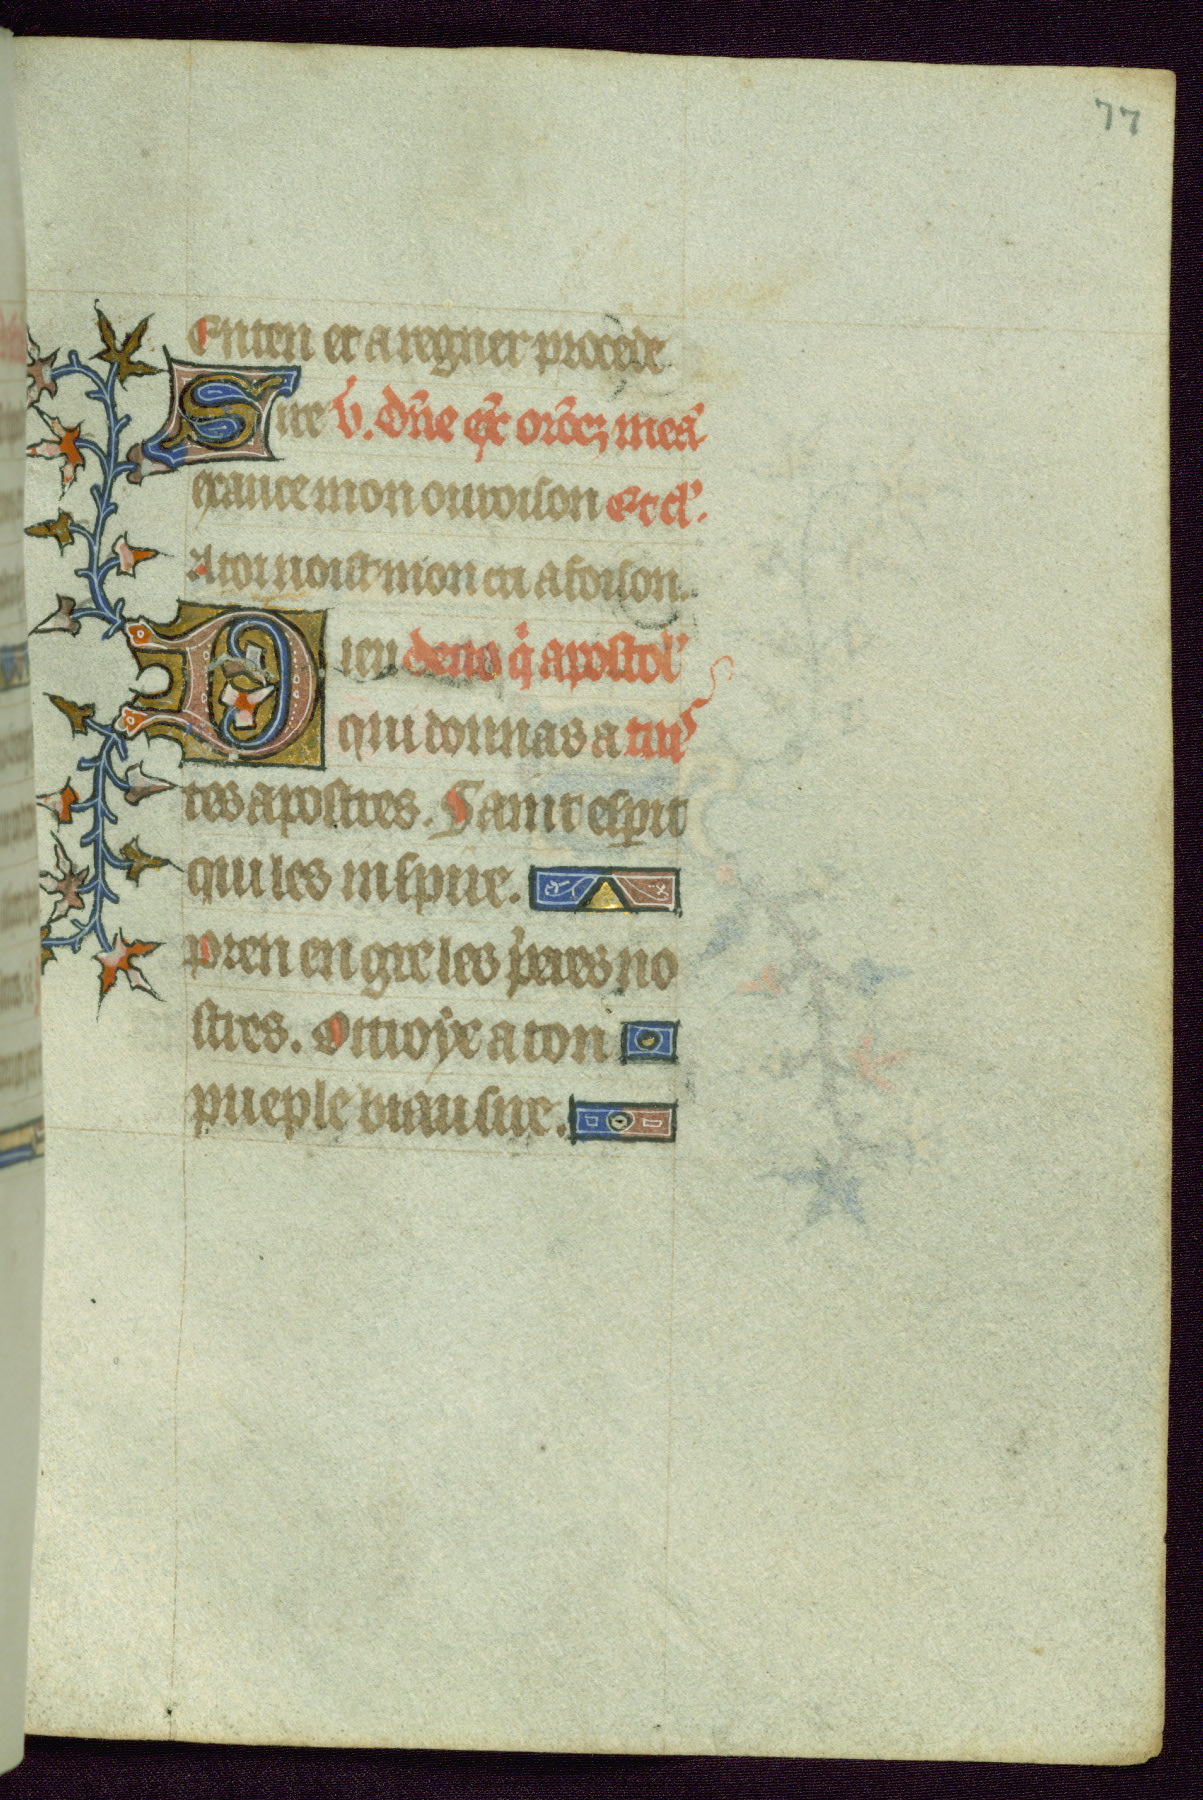 77
Enten et a regner procede
Sire v̄. dn̄e ex̄ or̄oc; mea᷒
exauce mon ouroison Et cl᷒.
A toi voist mon cri a foison.
Dieu deus q̇ apostol᷒
qui donnas a tui᷒
tes apostres. Saint esprit
qui les inspire.
pren en gre les p̄ieres no
stres. Ottroye a ton
pueple biau sire.